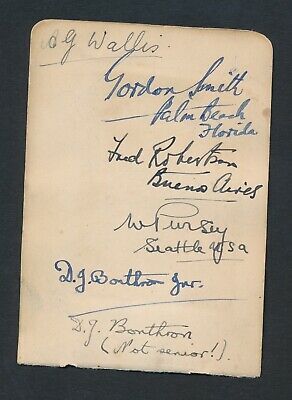 A G Wallis.
Gordon Smith
Palm Beach
Florida
Fred Robertson
Buenos Aires
W Pursey
Seattle USA
D.J. Bonthron Jnr.
D.J. Bonthron
(Not senior!).